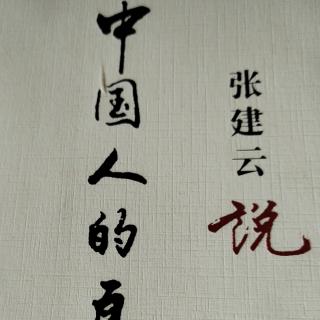 张建云说
中国人的